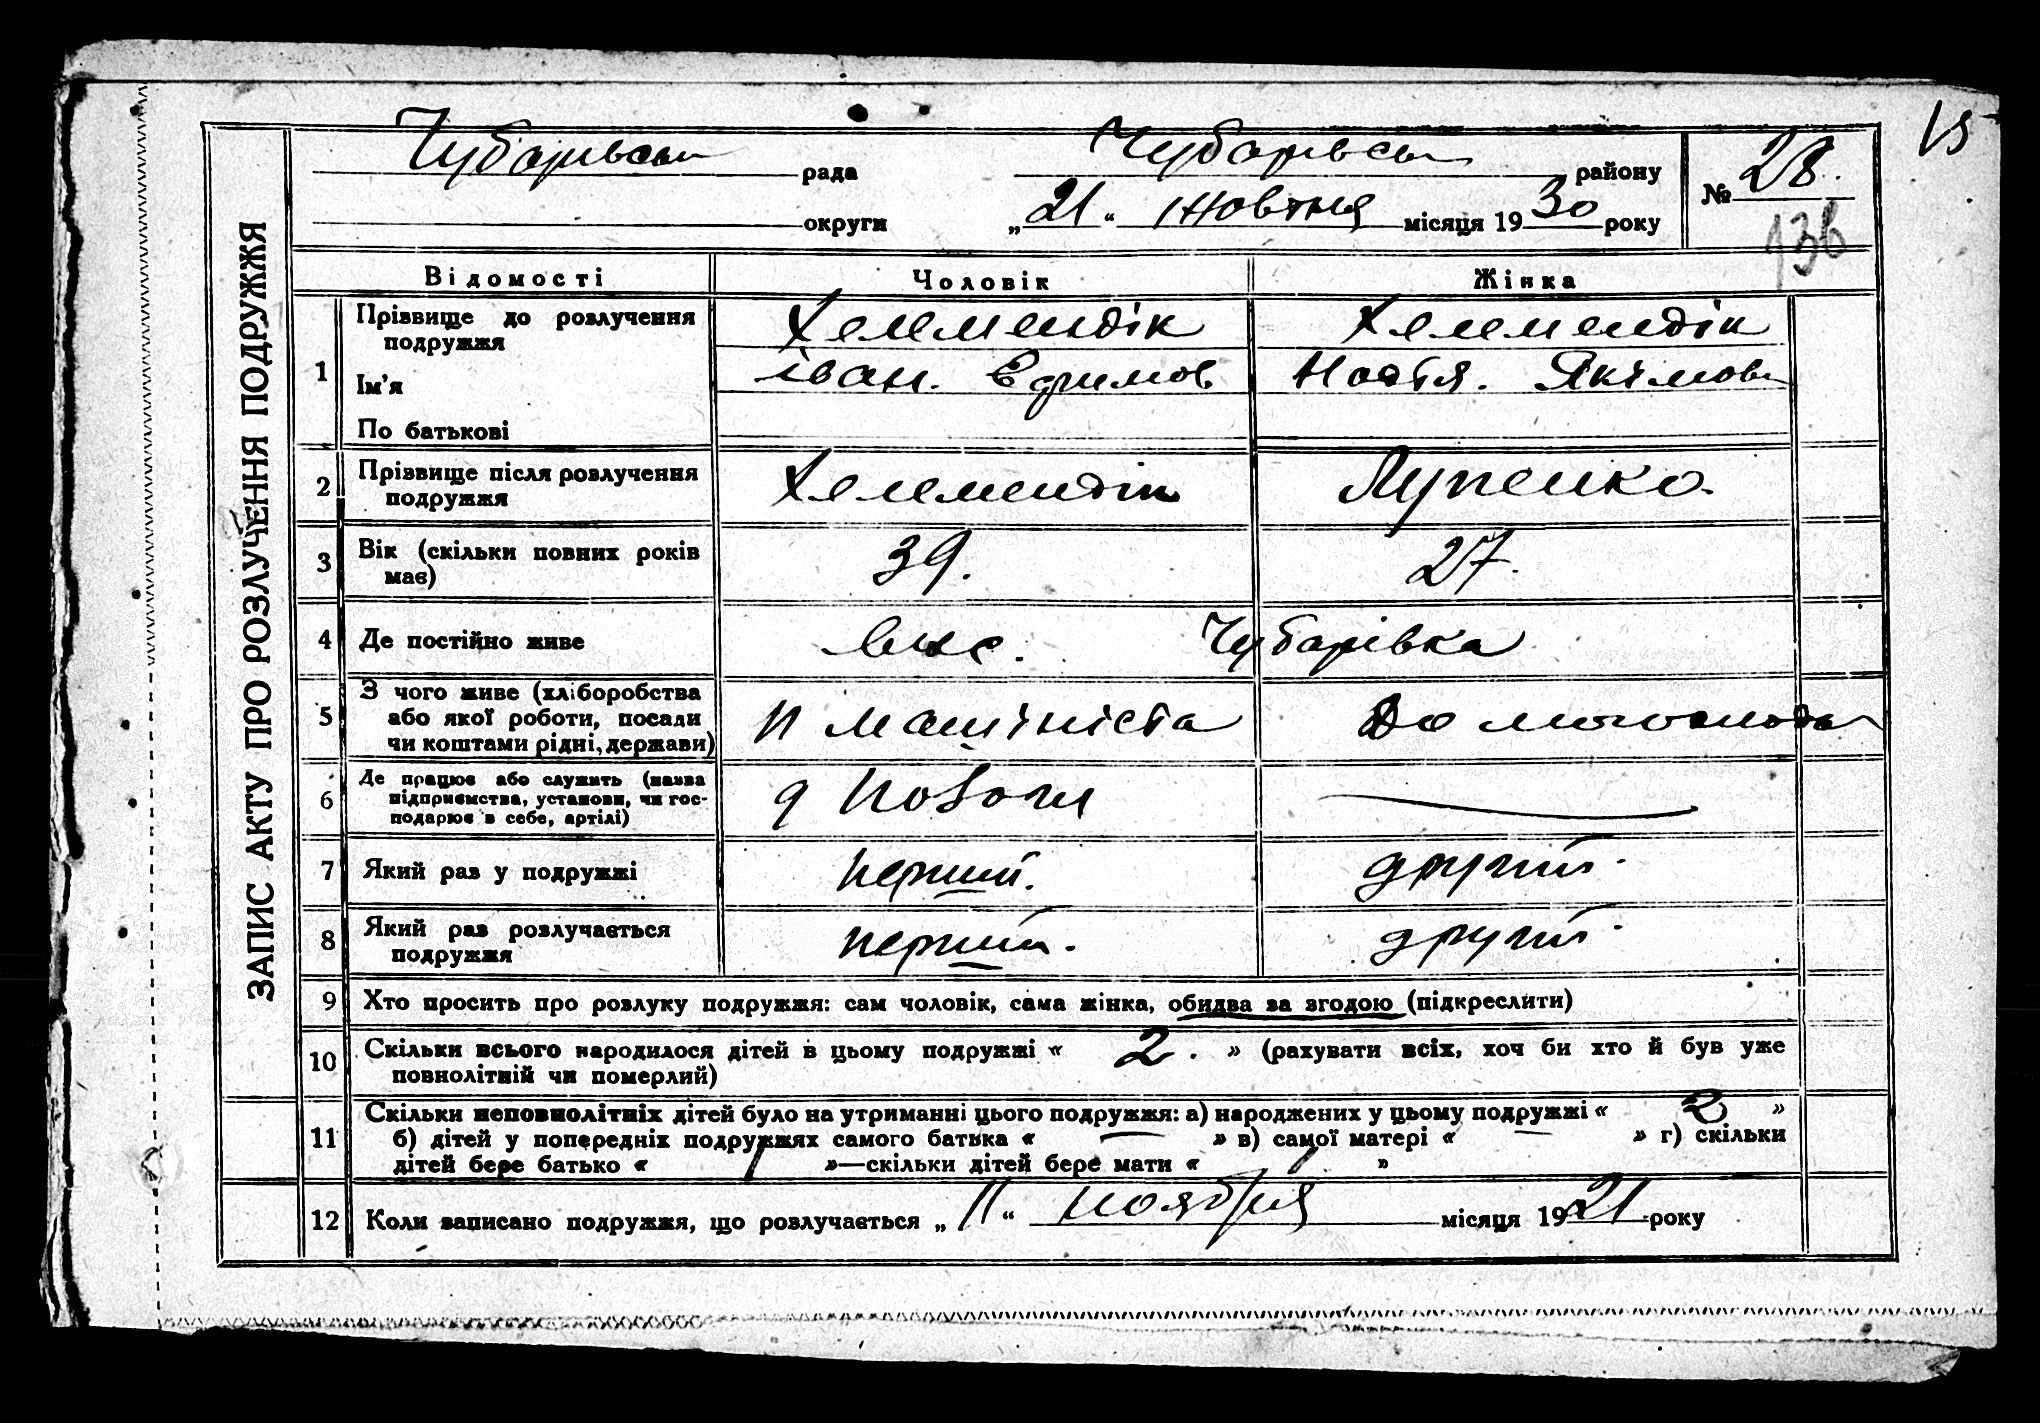 15
Чубарівська рада Чубарівська району № 28.
округи „21“ жовтня місяця 1930 року
136
ЗАПИС АКТУ ПРО РОЗЛУЧЕННЯ ПОДРУЖЖЯ
Відомості Чоловік Жінка
1 Прізвище до розлучення подружжя Хелемендік Хелемендік
Ім’я іван. Єфимов Настя. Якімовн
По батькові
2 Прізвище після розлучення подружжя Хелемендік Лупенко.
3 Вік (скільки повних років має) 39. 27.
4 Де постійно живе Чубарівка
5 З чого живе (хліборобства або якої роботи, посади чи коштами рідні, держави) п машініста Домогоспода
6 Де працює або служить (назва підприємства, установи, чи господарює в себе, артілі)
7 Який раз у подружжі перший. другий.
8 Який раз розлучається подружжя перший. другий.
9 Хто просить про розлуку подружжя: сам чоловік, сама жінка, обидва за згодою (підкреслити)
10 Скільки всього народилося дітей в цьому подружжі « 2. » (рахувати всіх, хоч би хто й був уже
повнолітній чи померлий)
11 Скільки неповнолітніх дітей було на утриманні цього подружжя: а) народжених у цьому подружжі « 2 »
б) дітей у попередніх подружжях самого батька « — » в) самої матері « — » г) скільки
дітей бере батько « 1 »—скільки дітей бере мати « 1 »
12 Коли записано подружжя, що розлучається „11“ ноября місяця 1921 року